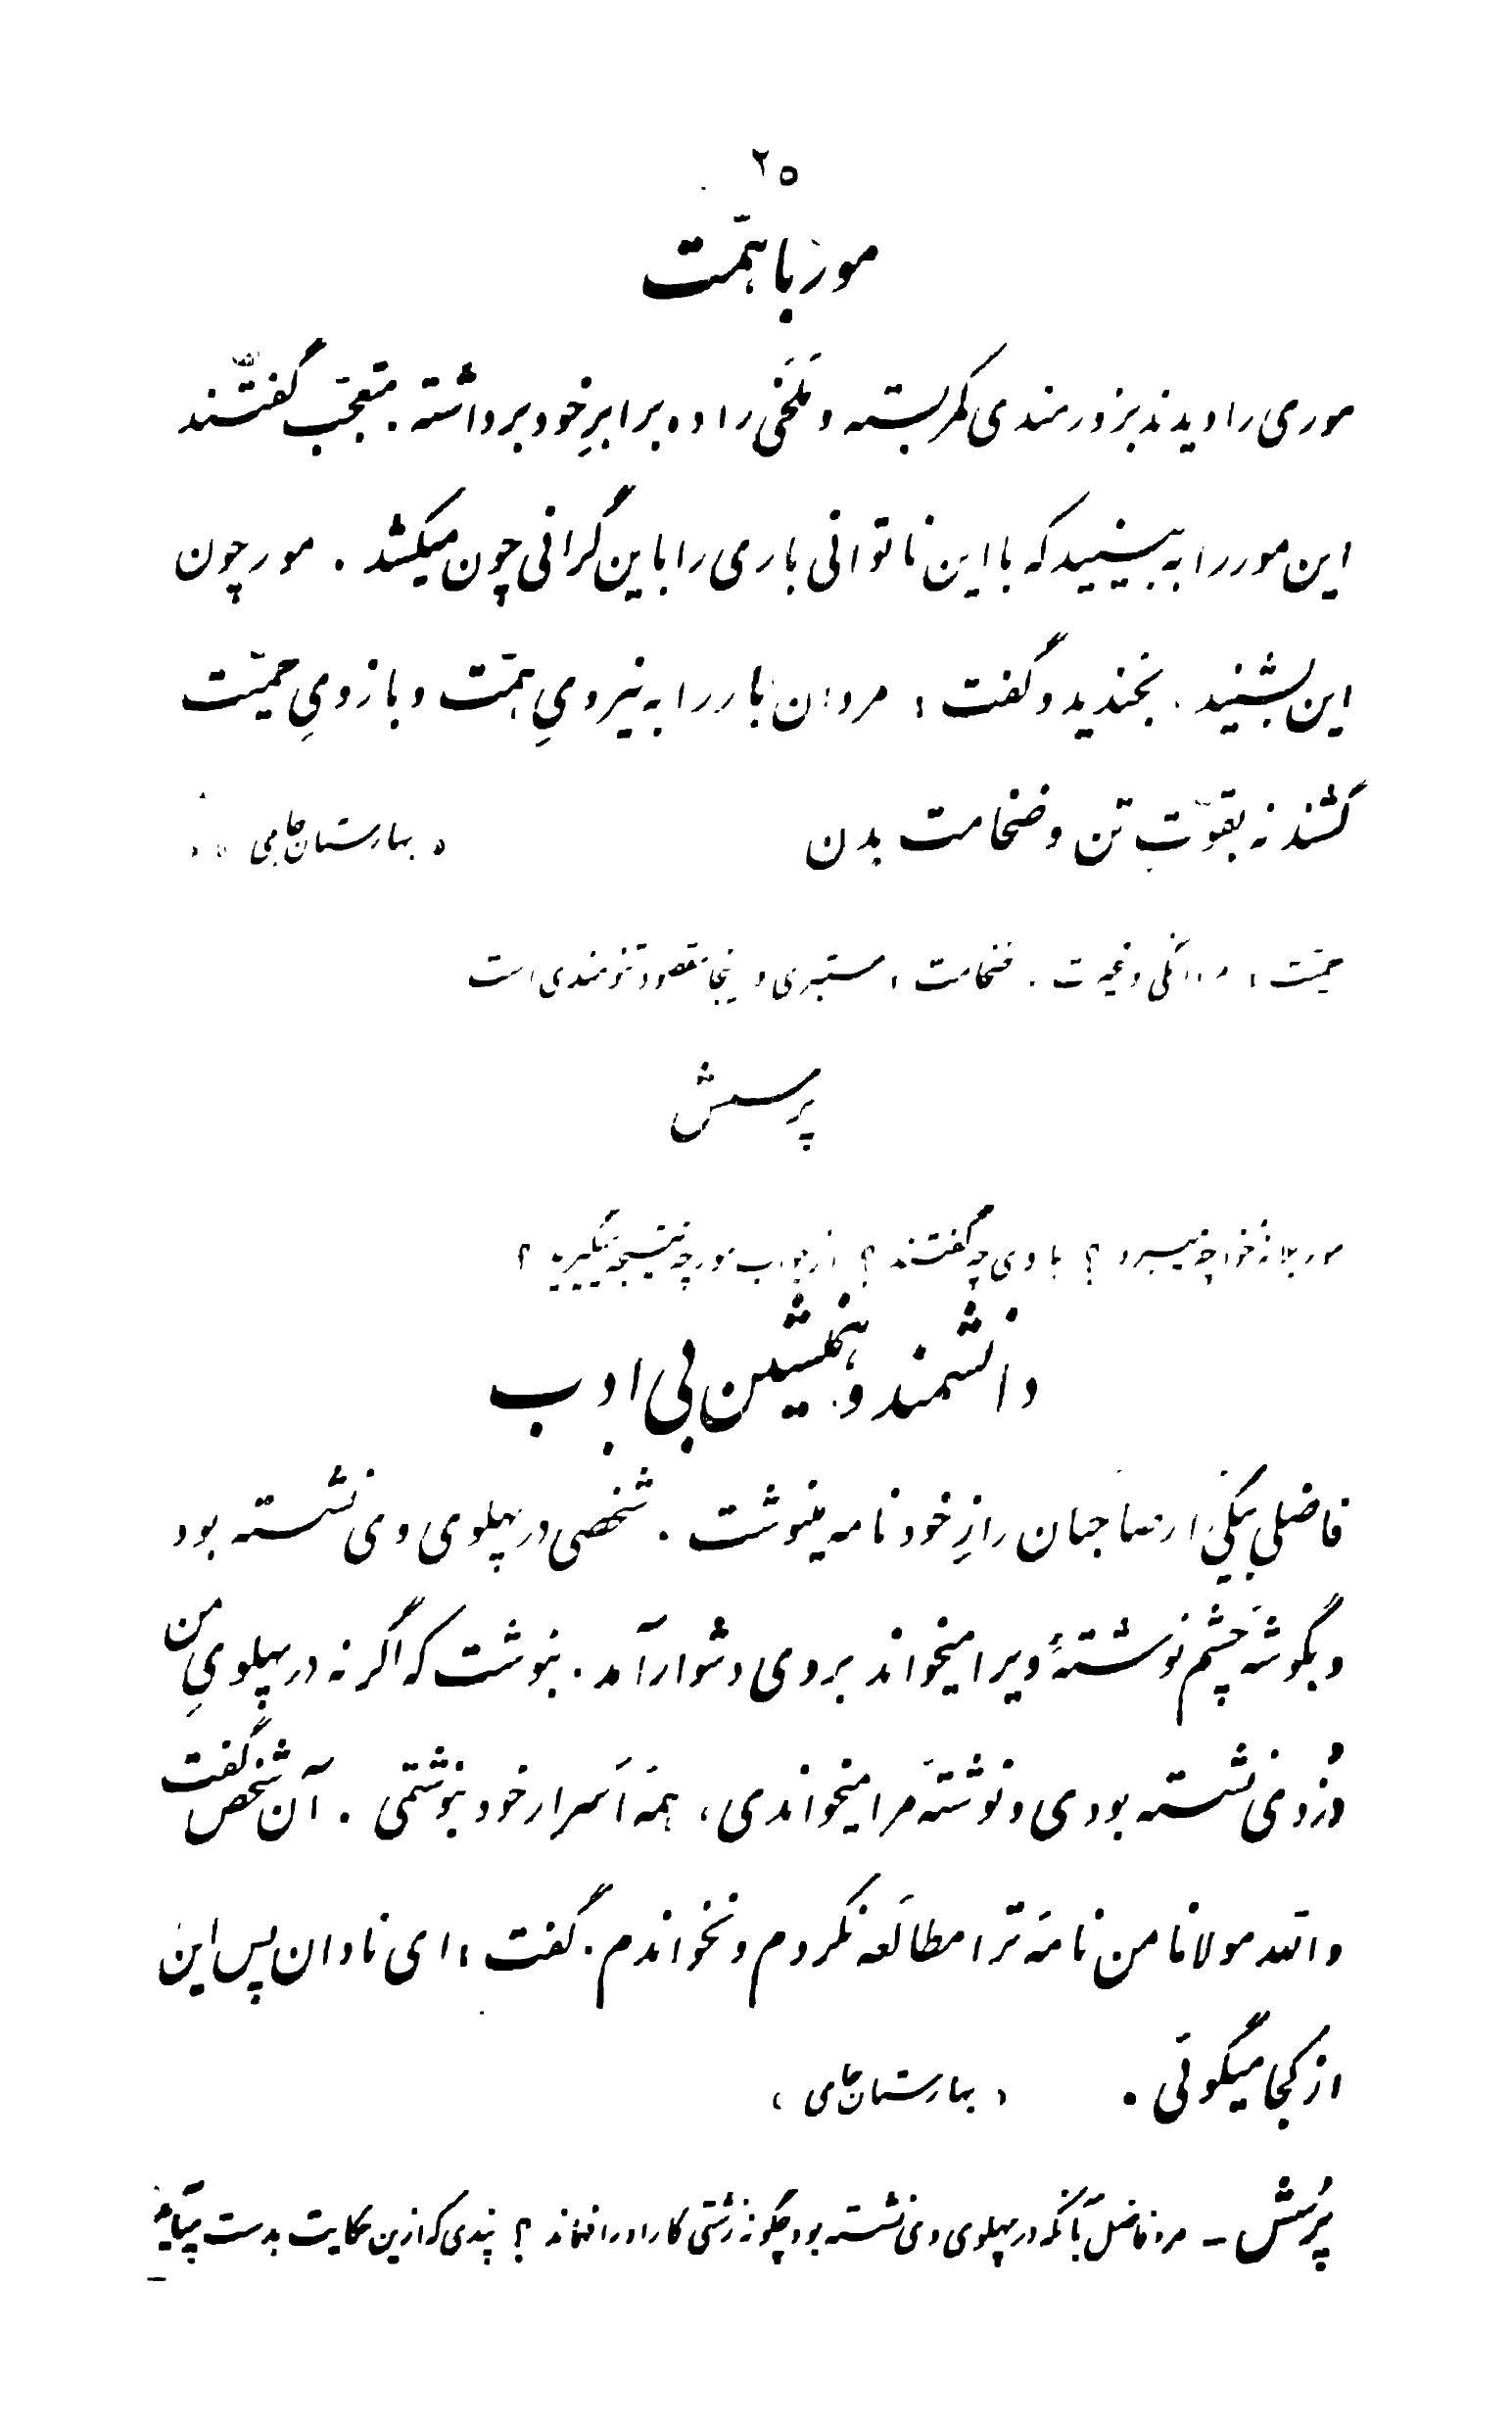 ۲۵
مور با همّت
موری را دیدند بزورمندی کمر بسته و مَلَخی را ده برابرِ خود برداشته. متعجّب گفتند
این مور را به بینید که با این ناتوانی باری را باین گرانی چون میکشد . مور چون
این بشنید . بخندید و گفت : مردان بار را به نیرویِ همّت و بازویِ حمیّت
کشند نه بقوّتِ تن و ضخامت بدن
« بهارستان جامی »
حمیّت : مردانگی و غیرت . ضخامت : ستبری و اینجا مقصود تنومندی است
پرسش
مور بلانهٔ خود چه میبرد ؟ با وی چه گفتند ؟ از جواب مور چه نتیجه میگیرید ؟
دانشمند و همنشین بی ادب
فاضلی بیکی از صاحبان رازِ خود نامه مینوشت . شخصی در پهلوی وی نشسته بود
و بگوشه چَشم نوشتهٔ ویرا میخواند بروی دشوار آمد . بنوشت که اگر نه در پهلویِ من
دُزدی نشسته بودی و نوشتهَ مرا میخواندی ، همهَ اَسرار خود بنوشتمی . آن شخص گفت
والله مولانا من نامهَ ترا مطالَعه نکردم و نخواندم . گفت : ای نادان پس این
از کجا میگوئی .
« بهارستان جامی »
پُرسش - مرد فاضل بآنکه در پهلوی وی نشسته بود چگونه زشتی کار او را فهماند ؟ پندی که ازین حکایت بدست میآید